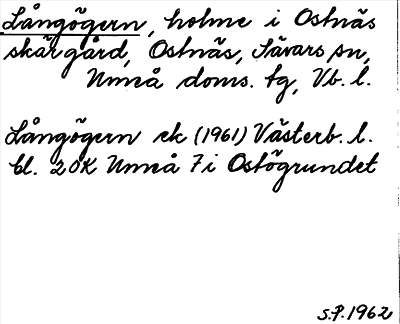 Långögern, holme i Ostnäs
skärgård, Ostnäs, Sävars sn,
Umeå doms. tg, Vb. l.
Långögern ek (1961) Västerb. l.
bl. 20K Umeå 7i Ostögrundet
S.P. 1962